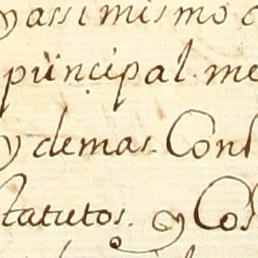 y assi mismo
püncipal. me
y demas. Con
tatutos. y Cos